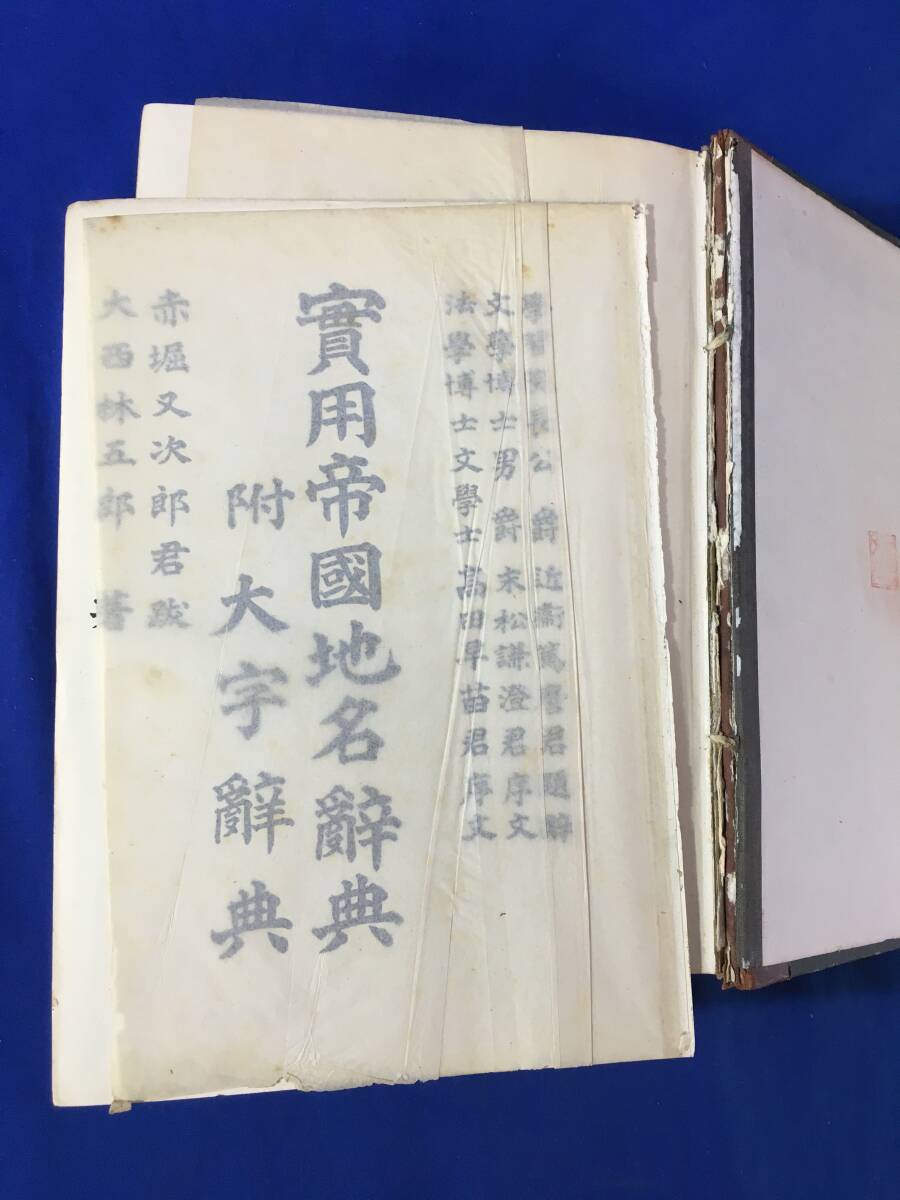 學習院長公爵近衞篤麿君題辭
文學博士男爵末松謙澄君序文
法學博士文學士高田早苗君序文
實用帝國地名辭典
附大字辭典
赤堀又次郎君跋
大西林五郎著